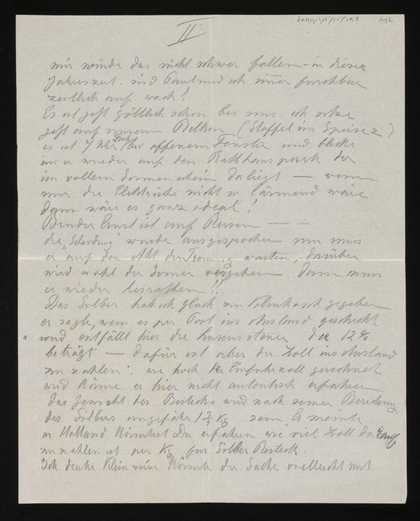 II
mir würde das nicht schwer fallen in dieser
Jahreszeit sind Paul und ich immer furchtbar
zeitlich auf wach!
Es ist jetzt göttlich schön bei uns ich
jetzt auf meinem Balkon (Stoffel im Speisez)
es ist 7 Uhr früh offenem Fenster und blicke
immer wieder auf den Rathauspark der
im vollem Sonnenschein daliegt — wenn
nur die Elektrische nicht so lärmend wäre
dann wäre es ganz ideal!
Bruder Ernst ist auf Reisen — —
die Scheidung wurde ausgesprochen nun muss
er auf den warten, darüber
wird wohl der Sommer vergehen dann muss
er wieder !!
Das Silber hab ich gleich gegeben
er sagte, wenn es per Post ins Ausland geschickt
wird entfällt hier die Luxussteuer, die 12%
beträgt — dafür ist aber der Zoll ins Ausland
zu zahlen; wie hoch der Einfuhrzoll gerechnet
wird könne er hier nicht authentisch erfahren
das Gewicht des Bestecks wird nach seiner Berechnung
des Silbers ungefähr Kg sein. Er meinte
in Holland könntest Du erfahren wie viel Zoll
zu zahlen ist per Kg für Silber Besteck.
Ich denke Klein könnte die Sache vielleicht mit